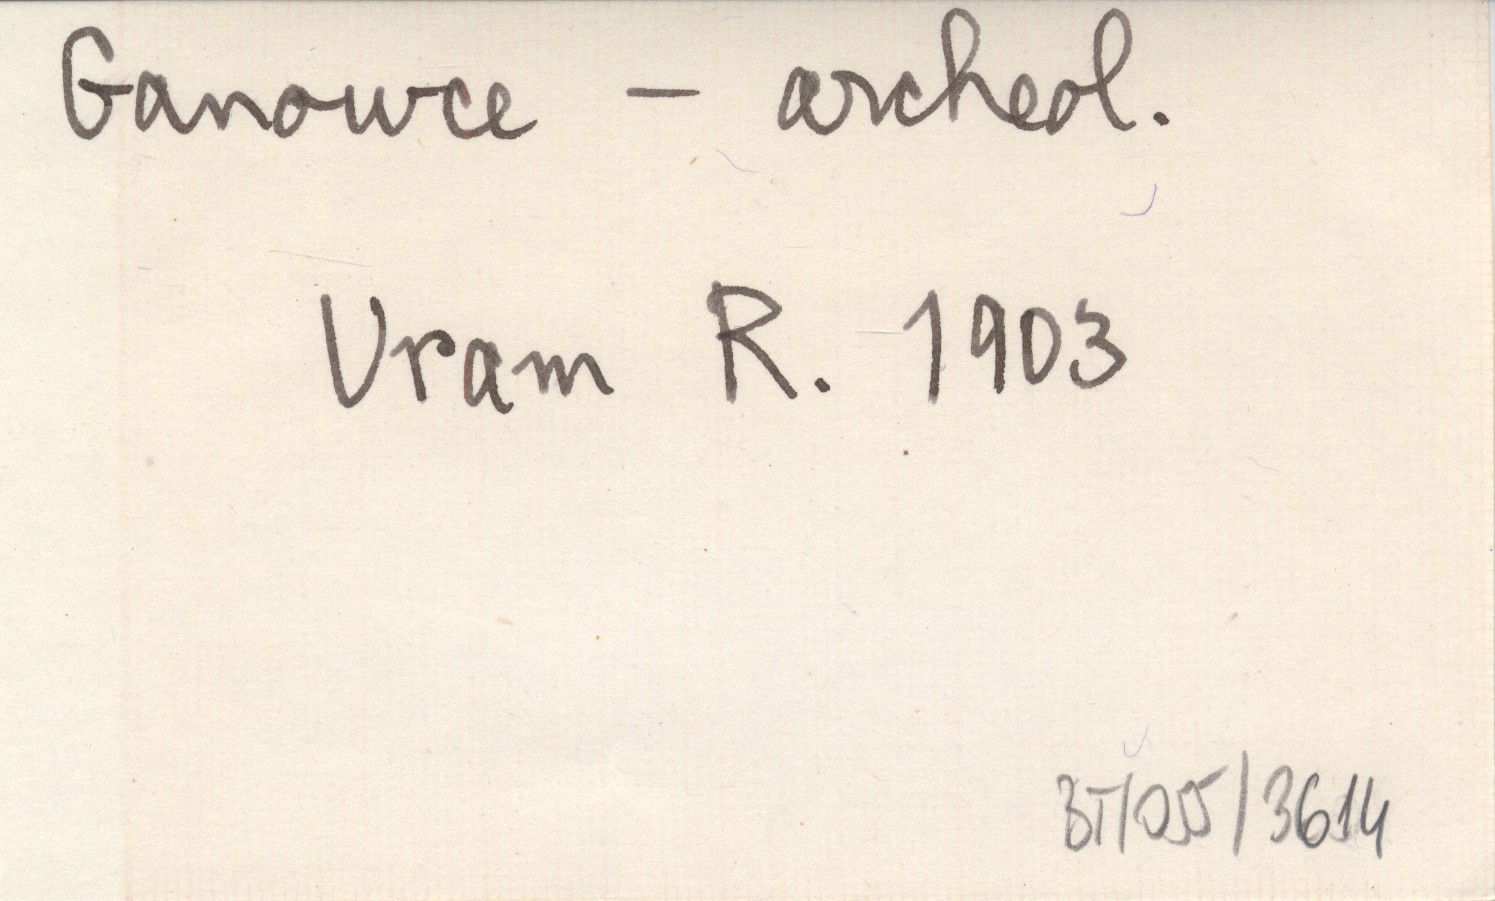 Ganowce - archeol.
Vram R. 1903
BT/055/3614